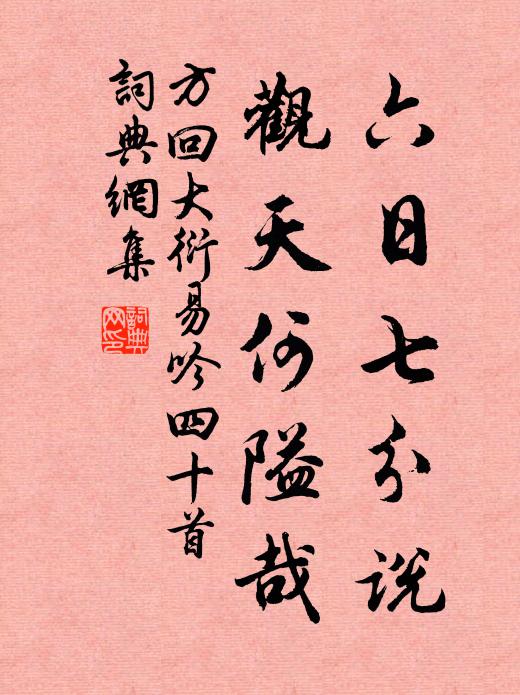 六日七分説
觀天何隘哉
方回大衍易吟四十首
詞典網集
詞典网印